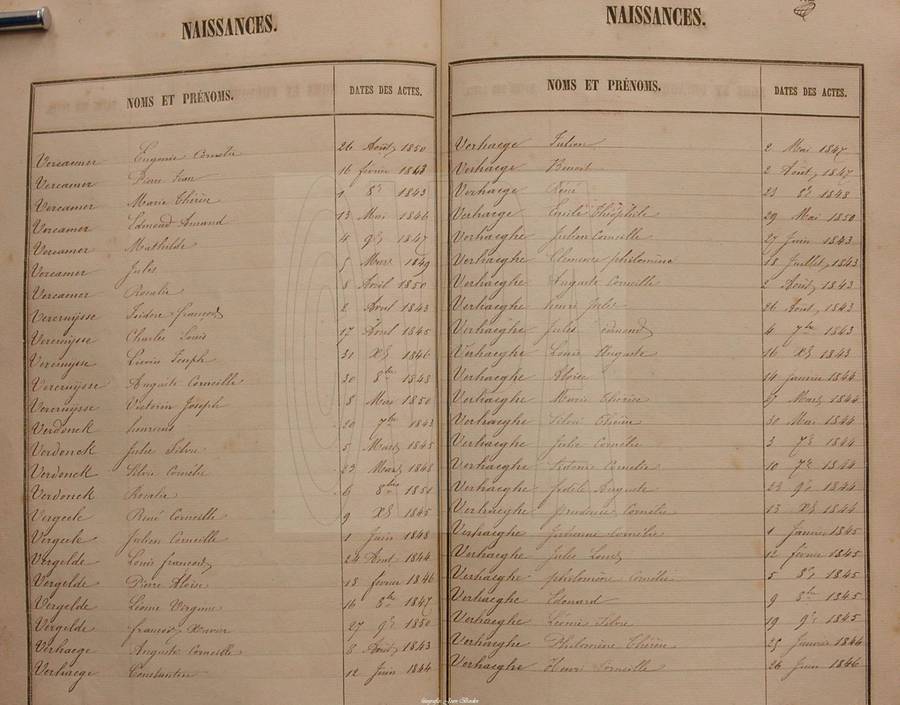 NAISSANCES.
NOMS ET PRÉNOMS. DATES DES ACTES.
Vercamer Eugenie Cornelie 26 Août 1850
Vercamer Pierre Jean 16 fevrier 1843
Vercamer Marie Thérèse 1 8e 1843
Vercamer Edmond Amand 13 Mai 1846
Vercamer Mathilde 4 9e 1847
Vercamer Jules 5 Mars 1849
Vercamer Rosalie 8 Avril 1850
Vercruijsse Isidore francois 2 Avril 1843
Vercruijsse Charles Louis 17 Avril 1845
Vercruijsse Livin Joseph 31 Xe 1846
Vercruijsse Auguste Corneille 30 8bre 1848
Vercruijsse Victorin Joseph 8 Mai 1850
Verdonck 20 7bre 1843
Verdonck Julie Silvie 5 Mars 1845
Verdonck Silvie Cornélie 23 Mars 1848
Verdonck Rosalie 6 8bre 1851
Vergeele René Corneille 9 Xe 1845
Vergeele Julien Corneille 1 Juin 1848
Vergelde Louis francois 24 Aout 1844
Vergelde Pierre Aloïse 18 fevrier 1846
Vergelde Léonie Virginie 16 8bre 1847
Vergelde francois Xavier 27 9e 1850
Verhaege Auguste Corneille 8 Août 1843
Verhaege Constantin 12 Juin 1844
NAISSANCES.
NOMS ET PRÉNOMS. DATES DES ACTES.
Verhaege Julien 2 Mai 1847
Verhaege Benoit 2 Août 1847
Verhaege René 23 8e 1848
Verhaege Emile Théophile 29 Mai 1850
Verhaeghe Julien Corneille 27 Juin 1843
Verhaeghe Clemence philomine 18 Juillet 1843
Verhaeghe Auguste Corneille 2 Août 1843
Verhaeghe henri Jules 26 Août 1843
Verhaeghe Jules edmond 4 7bre 1843
Verhaeghe Louis Auguste 16 Xe 1843
Verhaeghe Aloïse 14 janvier 1844
Verhaeghe Marie Thérèse 27 Mars 1844
Verhaeghe Silvie Thérèse 30 Mai 1844
Verhaeghe Julie Cornélie 3 7e 1844
Verhaeghe Sidonie Cornelie 10 7e 1844
Verhaeghe fidèle Auguste 23 9e 1844
Verhaeghe prudence Cornélie 13 Xe 1844
Verhaeghe Cornélie 1 Janvier 1845
Verhaeghe Jules Louis 12 février 1845
Verhaeghe philomène Cornélie 5 8e 1845
Verhaeghe Edouard 9 8bre 1845
Verhaeghe Léonie Silvie 19 9e 1845
Verhaeghe Philomène Thérèse 25 Janvier 1846
Verhaeghe Henri Corneille 26 Juin 1846